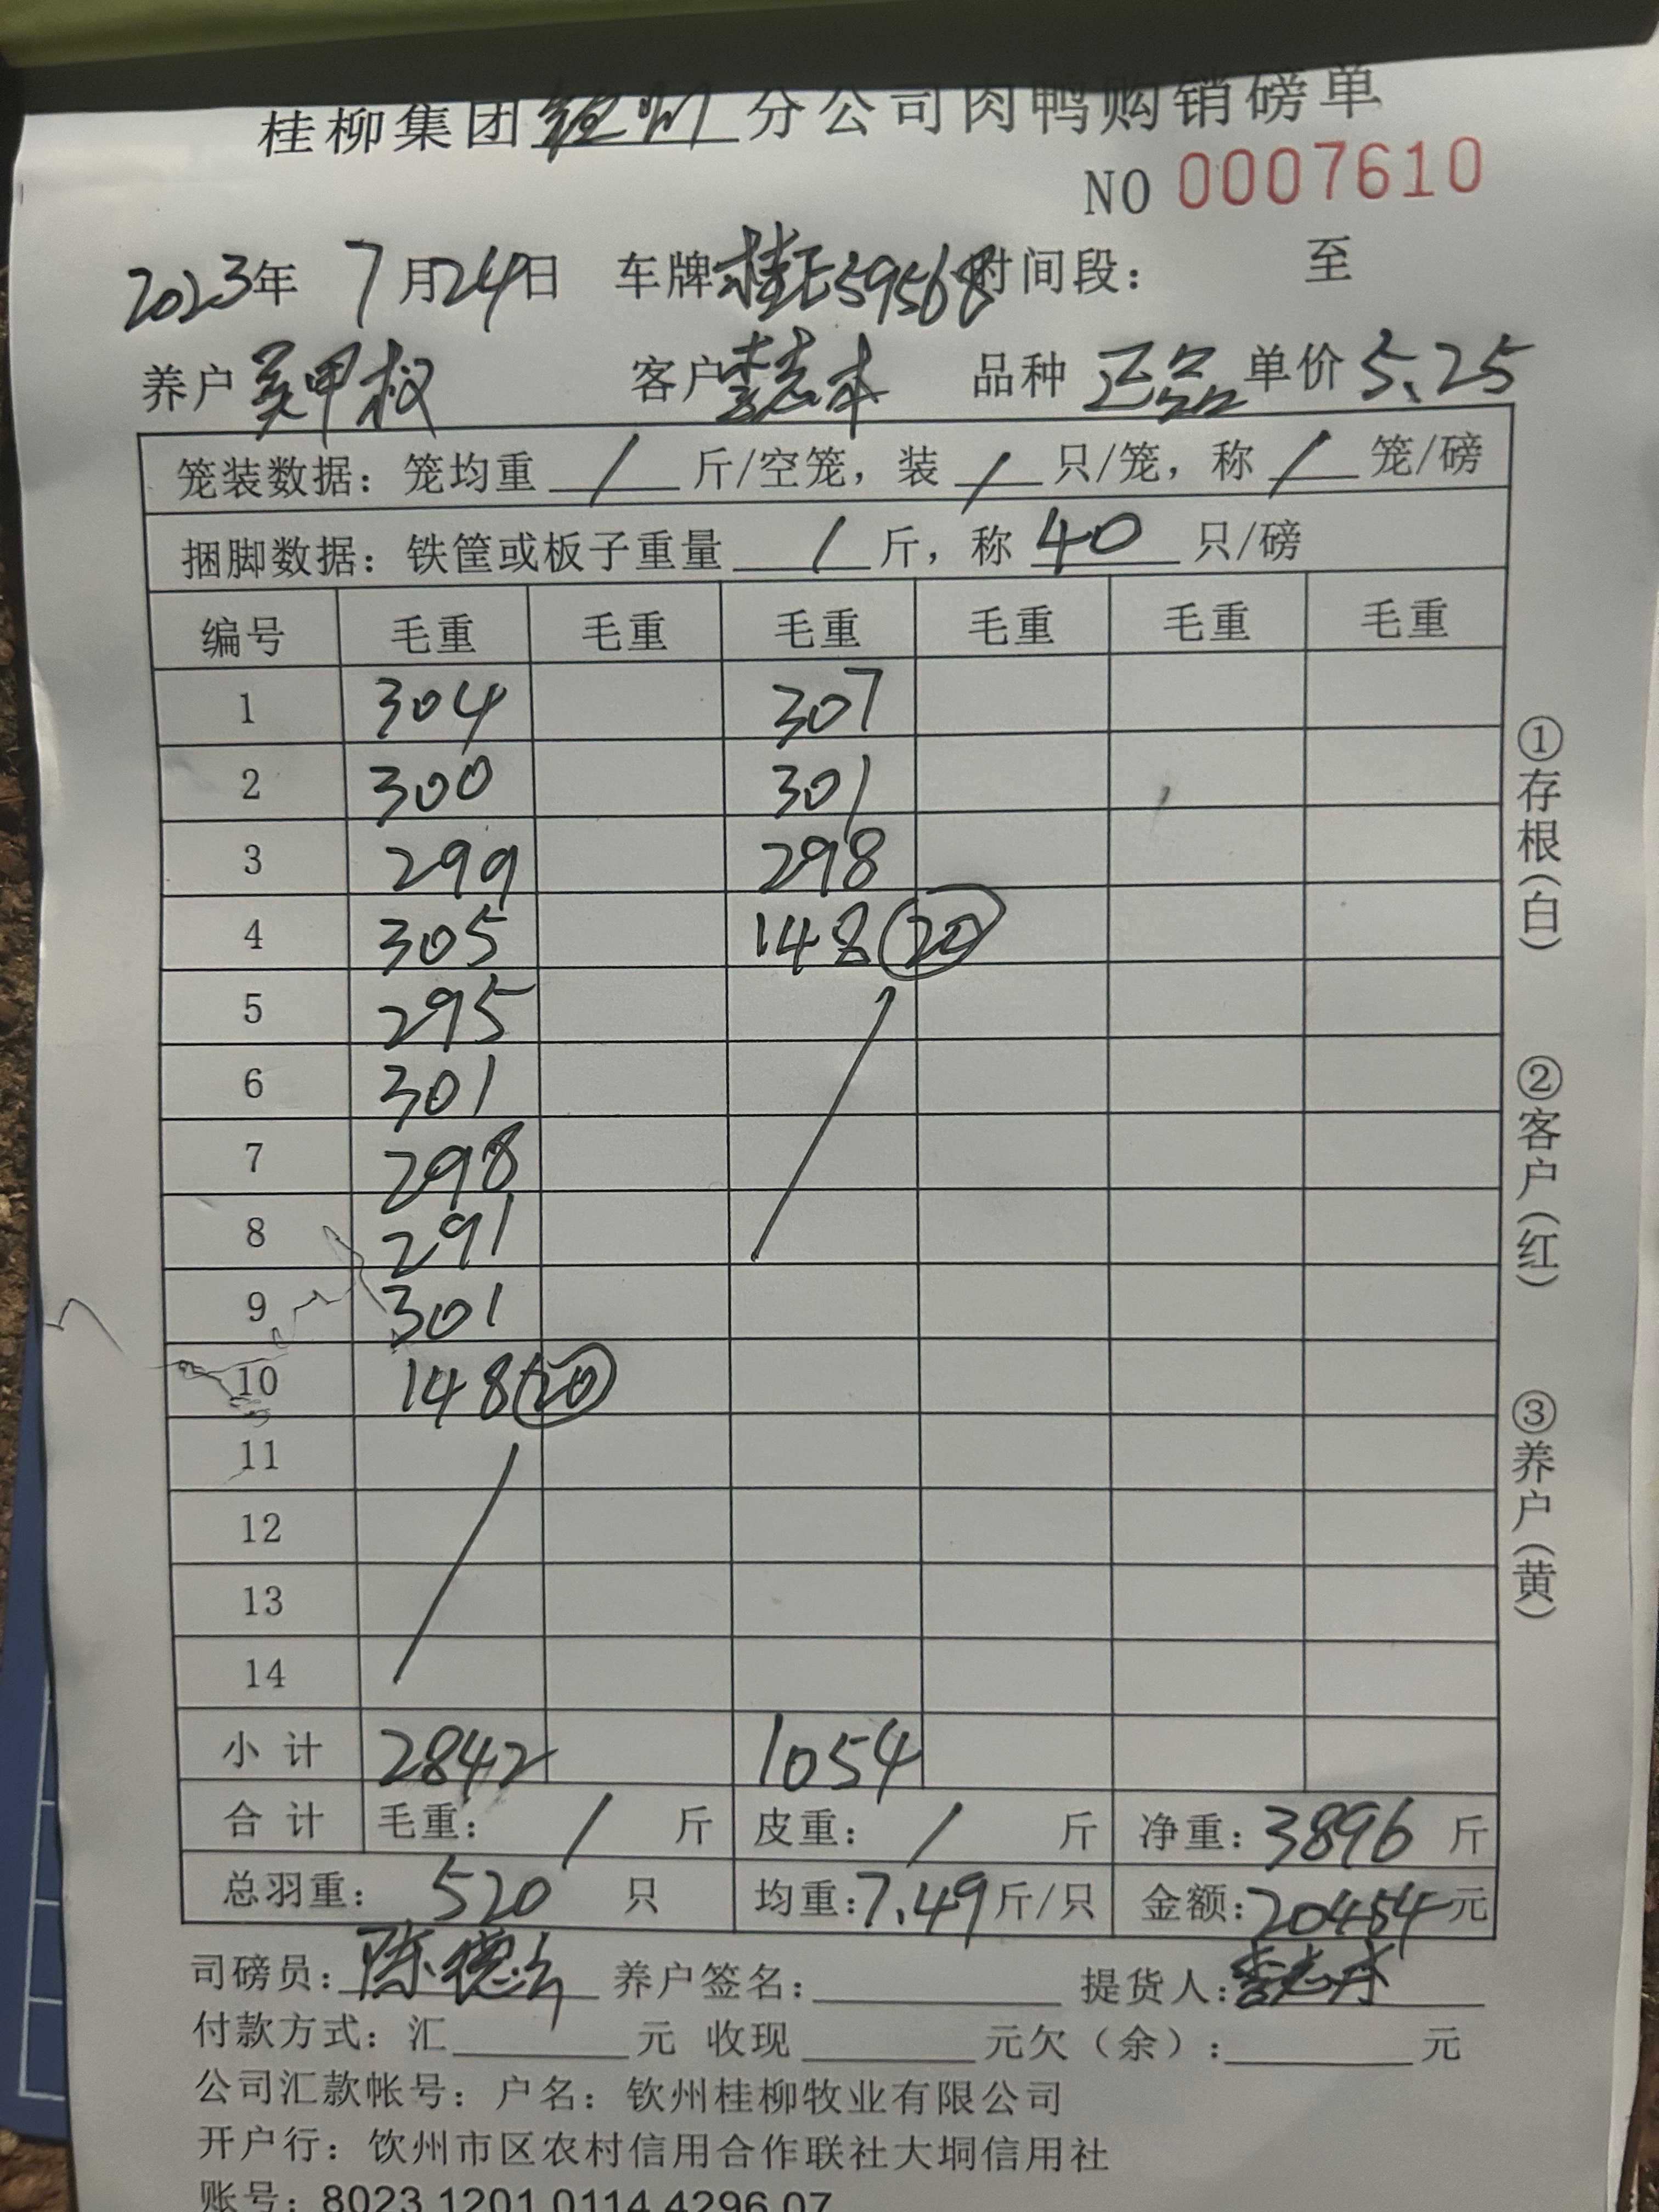 桂柳集团钦州分公司肉鸭购销磅单
NO 0007610
2023年 7月24日 车牌桂E59568时间段： 至
养户 吴甲权 客户李志 品种 正品 单价 5.25
笼装数据：笼均重 / 斤/空笼，装 / 只/笼，称 / 笼/磅
捆脚数据：铁筐或板子重量 / 斤，称 40 只/磅
编号 毛重 毛重 毛重 毛重 毛重 毛重
1 304 307
2 300 301
3 299 298
4 305 148 20
5 295
6 301
7 298
8 291
9 301
10 148 20
11
12
13
14
小计 2842 1054
合计 毛重： / 斤 皮重： / 斤 净重：3896 斤
总羽重： 520 只 均重：7.49斤/只 金额：20454元
司磅员：陈德 养户签名： 提货人：李志
付款方式：汇 元 收现 元欠（余）： 元
公司汇款帐号：户名：钦州桂柳牧业有限公司
开户行：饮州市区农村信用合作联社大垌信用社
账号：8023 1201 0114 4296 07
①存根（白）
②客户（红）
③养户（黄）